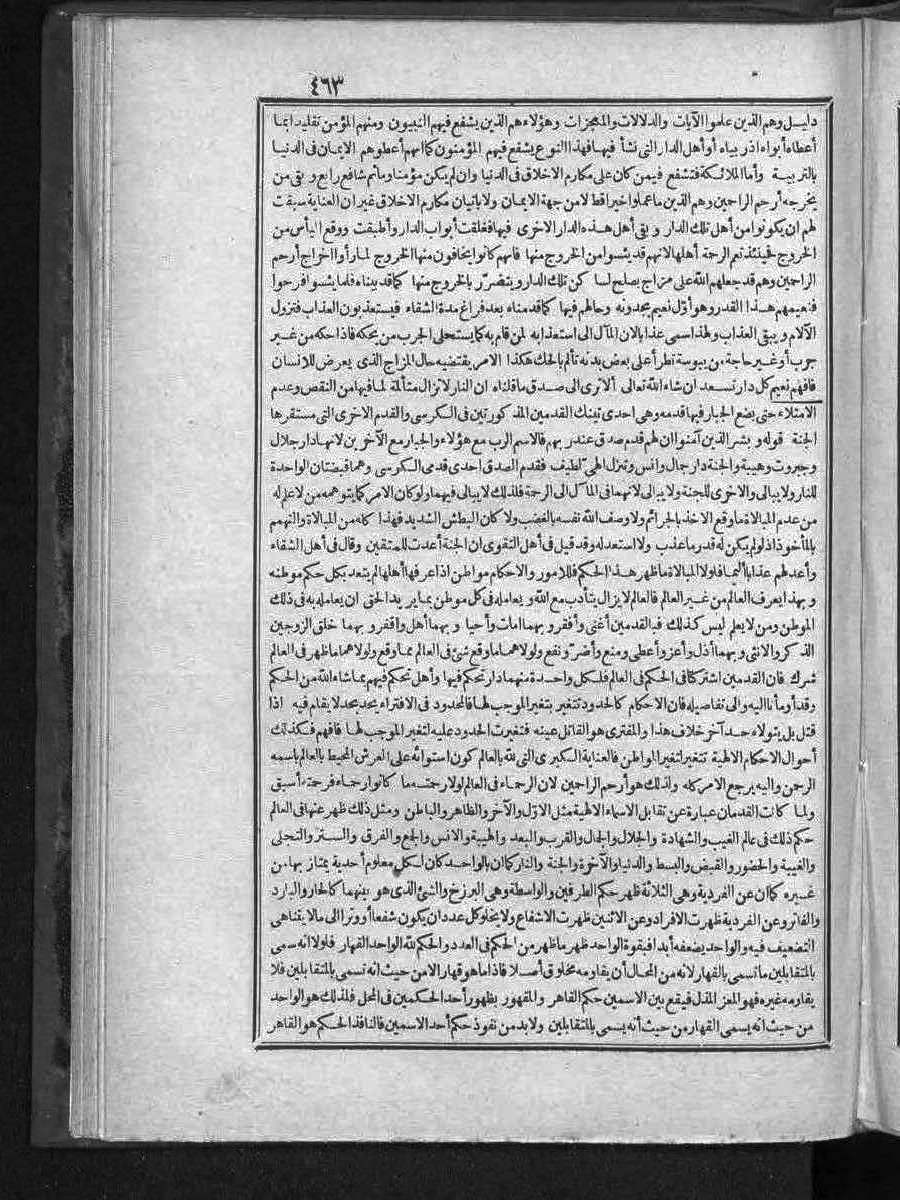 ٤٦٣
دليل وهم الذين علموا الآيات والدلالات والمعجزات وهؤلاء هم الذين يشفع فيهم النبيون ومنهم المؤمن تقليدا بما
أعطاه أبواه اذ ربياه أو أهل الدار التي نشأ فيها فهذا النوع يشفع فيهم المؤمنون كما انهم أعطوهم الايمان في الدنيا
بالتربية وأما الملائكة فتشفع فيمن كان على مكارم الاخلاق في الدنيا وان لم يكن مؤمنا وما ثم شافع رابع وبقى من
يخرجه أرحم الراحمين وهم الذين ما عملوا خيرا قط لا من جهة الايمان ولا باتيان مكارم الاخلاق غير ان العناية سبقت
لهم ان يكونوا من أهل تلك الدار وبقى أهل هذه الدار الاخرى فيها فغلقت أبواب الدار وأطبقت ووقع اليأس من
الخروج فحينئذ تعم الرحمة أهلها لانهم قد يئسوا من الخروج منها فانهم كانوا يخافون منها الخروج لما رأوا اخراج أرحم
الراحمين وهم قد جعلهم الله على مزاج يصلح لساكن تلك الدار ويتضرر بالخروج منها كما قد بيناه فلما يئسوا فرحوا
فنعيمهم هذا القدر وهو أول نعيم يجدونه وحالهم فيها كما قدمناه بعد فراغ مدة الشقاء فيستعذبون العذاب فتزول
الآلام ويبقى العذاب ولهذا سمى عذابا لان المآل الى استعذابه لمن قام به كما يستحلى الجرب من يحكه فاذا حكه من غير
جرب أو غير حاجة من يبوسة تطرأ على بعض بدنه تألم بالحك هكذا الامر يقتضيه حال المزاج الذى يعرض للانسان
فافهم نعيم كل دار تسعد ان شاء الله تعالى ألا ترى الى صدق ما قلناه ان النار لا تزال متألمة لما فيها من النقص وعدم
الامتلاء حتى يضع الجبار فيها قدمه وهى احدى تينك القدمين المذكورتين في الكرسى والقدم الاخرى التى مستقرها
الجنة قوله وبشر الذين آمنوا ان لهم قدم صدق عند ربهم فالاسم الرب مع هؤلاء والجبار مع الآخرين لانها دار جلال
وجبروت وهيبة والجنة دار جمال وانس وتنزل الهى لطيف فقدم الصدق احدى قدمى الكرسى وهما قبضتان الواحدة
للنار ولا يبالى والاخرى للجنة ولا يبالى لانهما فى المآل الى الرحمة فلذلك لا يبالى فيهما ولو كان الامر كما يتوهمه من لا علم له
من عدم المبالاة ما وقع الاخذ بالجرائم ولا وصف الله نفسه بالغضب ولا كان البطش الشديد فهذا كله من المبالاة والتهمم
بالمأخوذ اذ لو لم يكن له قدر ما عذب ولا استعد له وقد قيل فى أهل التقوى ان الجنة أعدت للمتقين وقال فى أهل الشقاء
وأعد لهم عذابا أليما فلولا المبالاة ما ظهر هذا الحكم فللامور والاحكام مواطن اذا عرفها أهلها لم يتعد بكل حكم موطنه
وبهذا يعرف العالم من غير العالم فالعالم لا يزال يتأدب مع الله ويعامله فى كل موطن بما يريد الحق ان يعامله به فى ذلك
الموطن ومن لا يعلم ليس كذلك فبالقدمين أغنى وأفقر وبهما امات وأحيا وبهما أهل وأقفر وبهما خلق الزوجين
الذكر والانثى وبهما أذل وأعز وأعطى ومنع وأضر ونفع ولولاهما ما وقع شئ فى العالم مما وقع ولولاهما ما ظهر فى العالم
شرك فان القدمين اشتركتا فى الحكم فى العالم فلكل واحدة منهما دار تحكم فيها وأهل تحكم فيهم بما شاء الله من الحكم
وقد أومأنا اليه والى تفاصيله فان الاحكام كالحدود تتغير بتغير الموجب لها فالمحدود فى الافتراء يحد بحد لا يقام فيه اذا
قتل بل يتولاه حد آخر خلاف هذا والمفترى هو القاتل عينه فتغيرت الحدود عليه لتغير الموجب لها فافهم فكذلك
أحوال الاحكام الالهية تتغير لتغير المواطن فالعناية الكبرى التى لله بالعالم كون استوائه على العرش المحيط بالعالم باسمه
الرحمن واليه يرجع الامر كله ولذلك هو أرحم الراحمين لان الرحماء فى العالم لولا رحمته ما كانوا رحماء فرحمته أسبق
ولما كانت القدمان عبارة عن تقابل الاسماء الالهية مثل الاول والآخر والظاهر والباطن ومثل ذلك ظهر عنها فى العالم
حكم ذلك فى عالم الغيب والشهادة والجلال والجمال والقرب والبعد والهيبة والانس والجمع والفرق والستر والتجلى
والغيبة والحضور والقبض والبسط والدنيا والآخرة والجنة والنار كما ان بالواحد كان لكل معلوم أحدية يمتاز بها من
غيره كما ان عن الفردية وهى الثلاثة ظهر حكم الطرفين والواسطة وهى البرزخ والشئ الذى هو بينهما كالحار والبارد
والفاتر وعن الفردية ظهرت الافراد وعن الاثنين ظهرت الاشفاع ولا يخلو كل عدد ان يكون شفعا أو وترا الى ما لا يتناهى
التضعيف فيه والواحد يضعفه أبدا فبقوة الواحد ظهر ما ظهر من الحكم فى العدد والحكم لله الواحد القهار فلولا انه سمى
بالمتقابلين ما تسمى بالقهار لانه من المحال أن يقاومه مخلوق أصلا فاذا ما هو قهار الا من حيث انه تسمى بالمتقابلين فلا
يقاومه غيره فهو المعز المذل فيقع بين الاسمين حكم القاهر والمقهور بظهور أحد الحكمين فى المحل فلذلك هو الواحد
من حيث انه يسمى القهار من حيث أنه يسمى بالمتقابلين ولا بد من نفوذ حكم أحد الاسمين فالنافذ الحكم هو القاهر